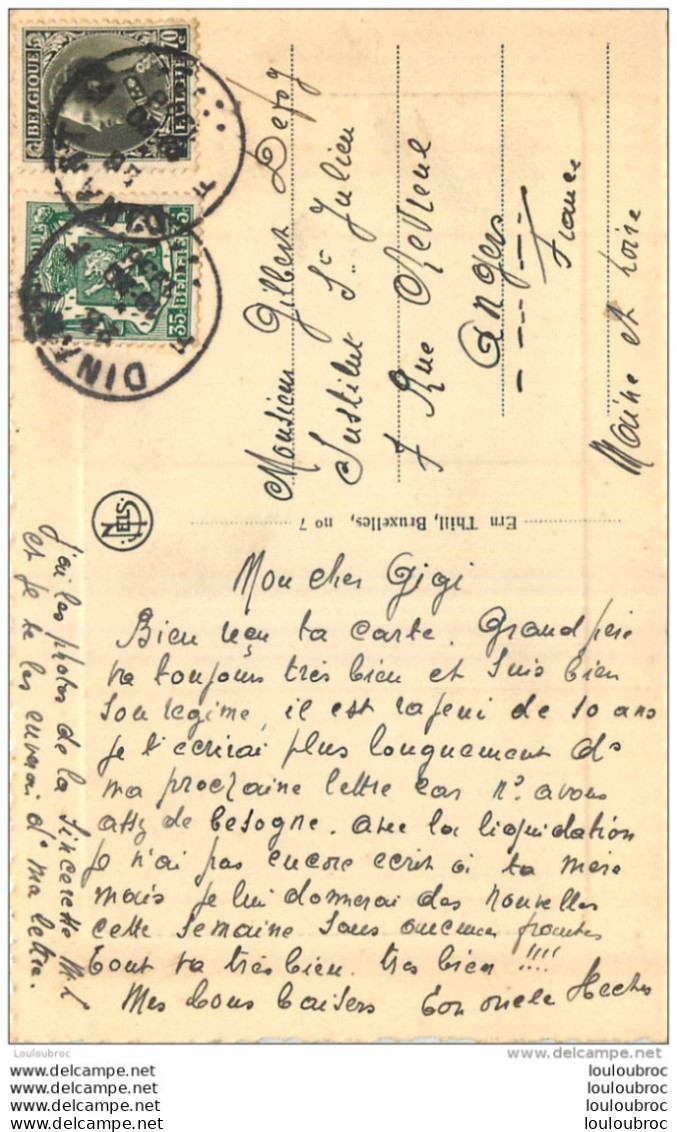 BELGIQUE
70
c
35
BELGIE
35
DINANT
Monsieur Gilbert Defoy
Institut St Julien
7 Rue
Angers
France
Maine et Loire
Ern Thill, Bruxelles, no 7
NELS
Mon cher Gigi
Bien reçu ta carte. Grand père
va toujours très bien et suis bien
son régime, il est rajeuni de 10 ans
Je t'écrirai plus longuement ds
ma prochaine lettre car ns avons
assez de besogne. avec la liquidation
Je n'ai pas encore écrit à ta mère
mais je lui donnerai des nouvelles
cette semaine sans aucunes
tout va très bien. très bien !!!!
Mes bons baisers Ton oncle
J'ai les photos de la
et je te les enverrai ds ma lettre.
Louloubroc
delcampe.net
louloubroc
louloubroc
louloubroc
louloubroc
louloubroc
louloubroc
louloubroc
louloubroc